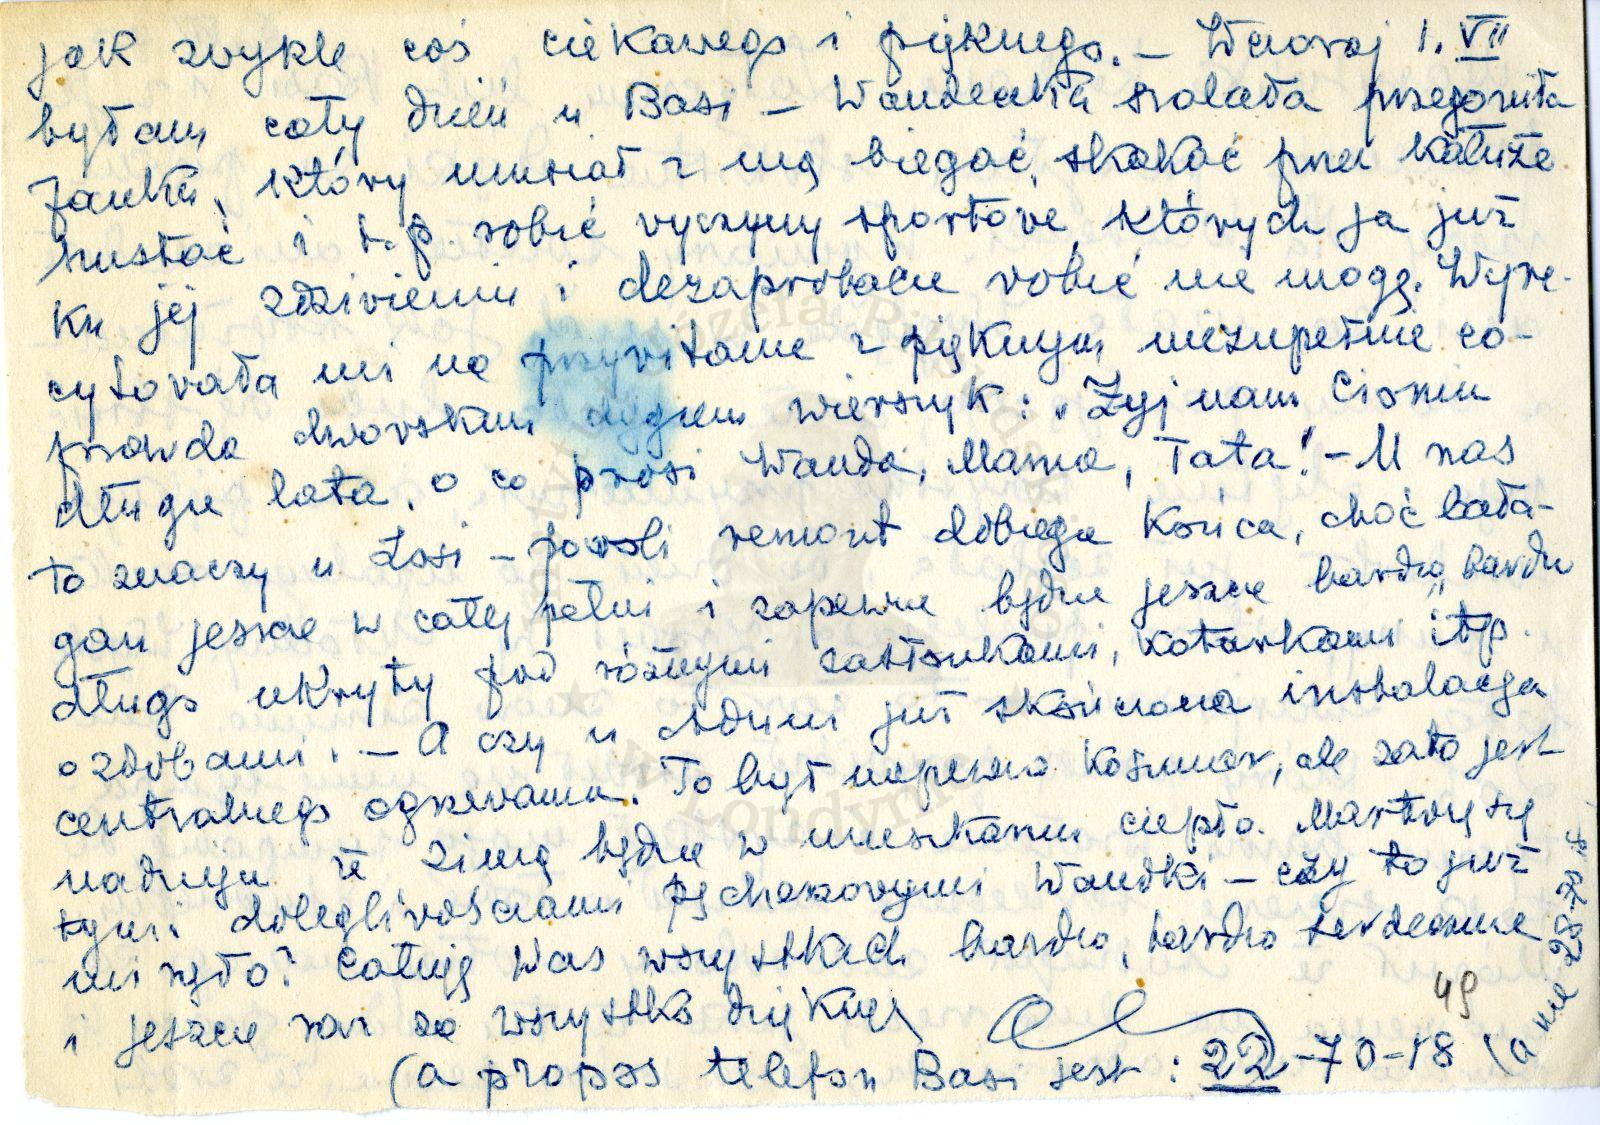 jak zwykle coś ciekawego i pięknego. – Wczoraj 1. VII
byłam cały dzień u Basi – Wandeczka szalała
Janka, który musiał z nią biegać, skakać przez kałuże
huśtać i t.p. robić wyczyny sportowe, których ja już
ku jej zdziwieniu i dezaprobacie robić nie mogę. Wyre-
cytowała mi na przywitanie z pięknym niezupełnie co-
prawda dworskim dygiem wierszyk: „Żyj nam Ciociu
długie lata, o co prosi Wanda, Mama, Tata! – U nas
to znaczy u Zosi – powoli remont dobiega końca, choć bała-
gan jeszcze w całej pełni i zapewne będzie jeszcze bardzo, bardzo
długo ukryty pod różnymi zasłonkami, kotarkami itp.
ozdobami. – A czy u już skończona instalacja
centralnego ogrzewania. To był napewno koszmar, ale zato jest
nadzieja że zimą będzie w mieszkaniu ciepło. Martwię się
tymi dolegliwościami pęcherzowymi Wandki – czy to już
minęło? Całuję Was wszystkich bardzo, bardzo serdecznie
i jeszcze raz za wszystko dziękuję
49
(a propos telefon Basi jest: 22-70-18 (a nie 29-70-18)
Londynie